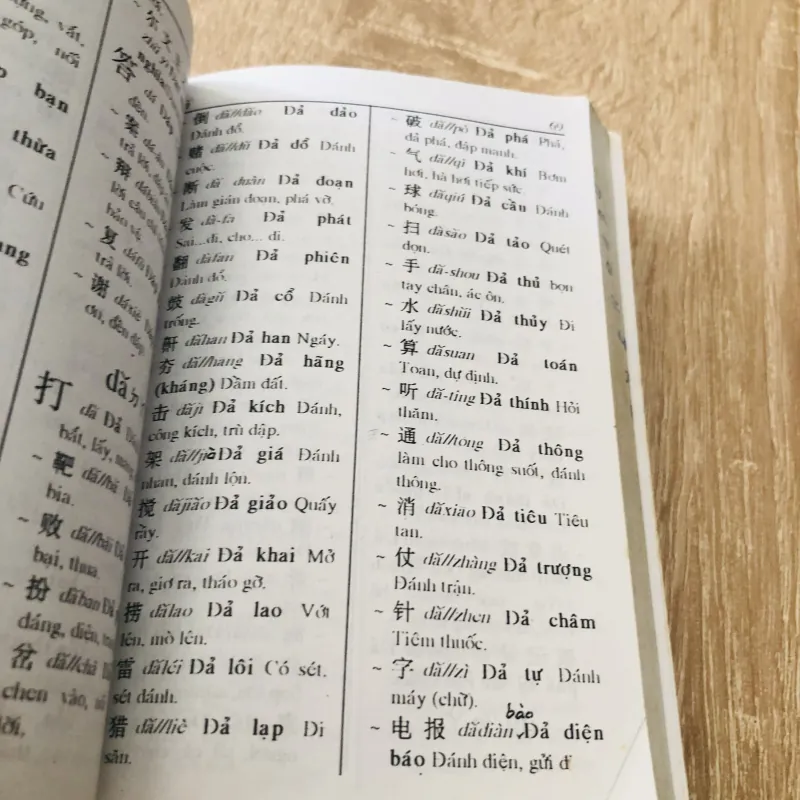 ợng, vất,
góp, nối
p bạn
thừa
Cứu
ang
答
~ 案
~ 辩
bảo vệ.
~ 复
trả lời.
~ 谢
打
~ 靶
bia.
~ 败
bại, thua.
~ 扮
dáng, diện,
~ 岔
chen vào,
lời,
~ 倒 dǎ//dǎo Đả đảo
Đánh đổ.
~ 赌 dǎ//dǔ Đả đổ Đánh
cuộc.
~ 断 dǎ duàn Đả đoạn
Làm gián đoạn, phá vỡ.
~ 发 dǎ-fā Đả phát
Sai...đi, cho... đi.
~ 翻 dǎfān Đả phiên
Đánh đổ.
~ 鼓 dǎgǔ Đả cổ Đánh
trống.
鼾 dǎhan Đả han Ngáy.
夯 dǎ//hang Đả hãng
(kháng) Đầm đất.
击 dǎjī Đả kích Đánh,
công kích, trù dập.
架 dǎ//jià Đả giá Đánh
nhau, đánh lộn.
搅 dǎjiǎo Đả giảo Quấy
rầy.
开 dǎ//kai Đả khai Mở
ra, giơ ra, tháo gỡ.
捞 dǎlao Đả lao Vớt
lên, mò lên.
雷 dǎléi Đả lôi Có sét,
sét đánh.
猎 dǎ//liè Đả lạp Đi
săn.
69
~ 破 dǎ//pò Đả phá Phá,
đả phá, đập mạnh.
~ 气 dǎ//qì Đả khí Bơm
hơi, hà hơi tiếp sức.
~ 球 dǎqiú Đả cầu Đánh
bóng.
~ 扫 dǎsǎo Đả tảo Quét
dọn.
~ 手 dǎ-shou Đả thủ bọn
tay chân, ác ôn.
~ 水 dǎshuǐ Đả thủy Đi
lấy nước.
~ 算 dǎsuan Đả toán
Toan, dự định.
~ 听 dǎ-ting Đả thính Hỏi
thăm.
~ 通 dǎ//tong Đả thông
làm cho thông suốt, đánh
thông.
~ 消 dǎxiao Đả tiêu Tiêu
tan.
~ 仗 dǎ//zhàng Đả trượng
Đánh trận.
~ 针 dǎ//zhen Đả châm
Tiêm thuốc.
~ 字 dǎ//zì Đả tự Đánh
máy (chữ).
bào
~ 电报 dǎdiàn Đả diện
báo Đánh điện, gửi đ